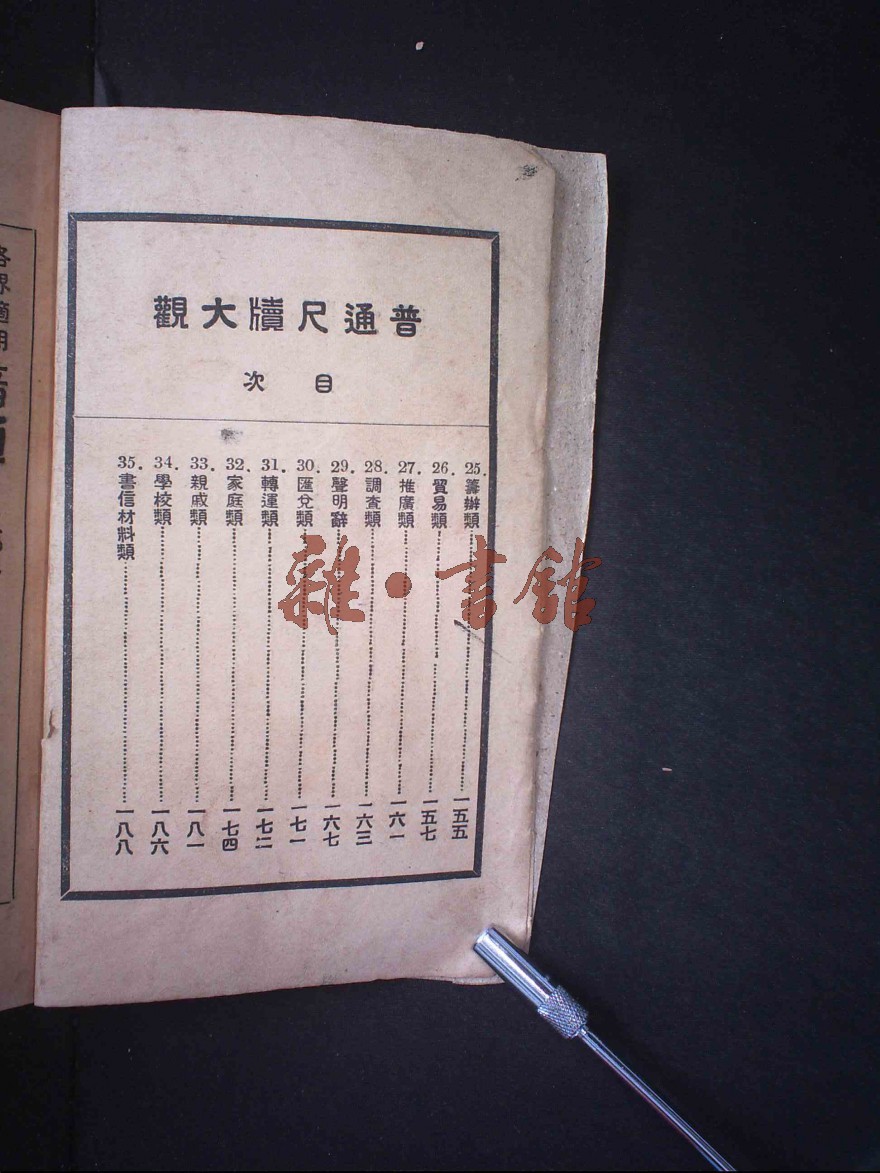 普通尺牘大觀
目次
25. 籌辦類 一五五
26. 貿易類 一五七
27. 推廣類 一六一
28. 調查類 一六三
29. 聲明辭 一六七
30. 匯兌類 一七一
31. 轉運類 一七二
32. 家庭類 一七四
33. 親戚類 一八一
34. 學校類 一八六
35. 書信材料類 一八八
雜·書館
各界適用